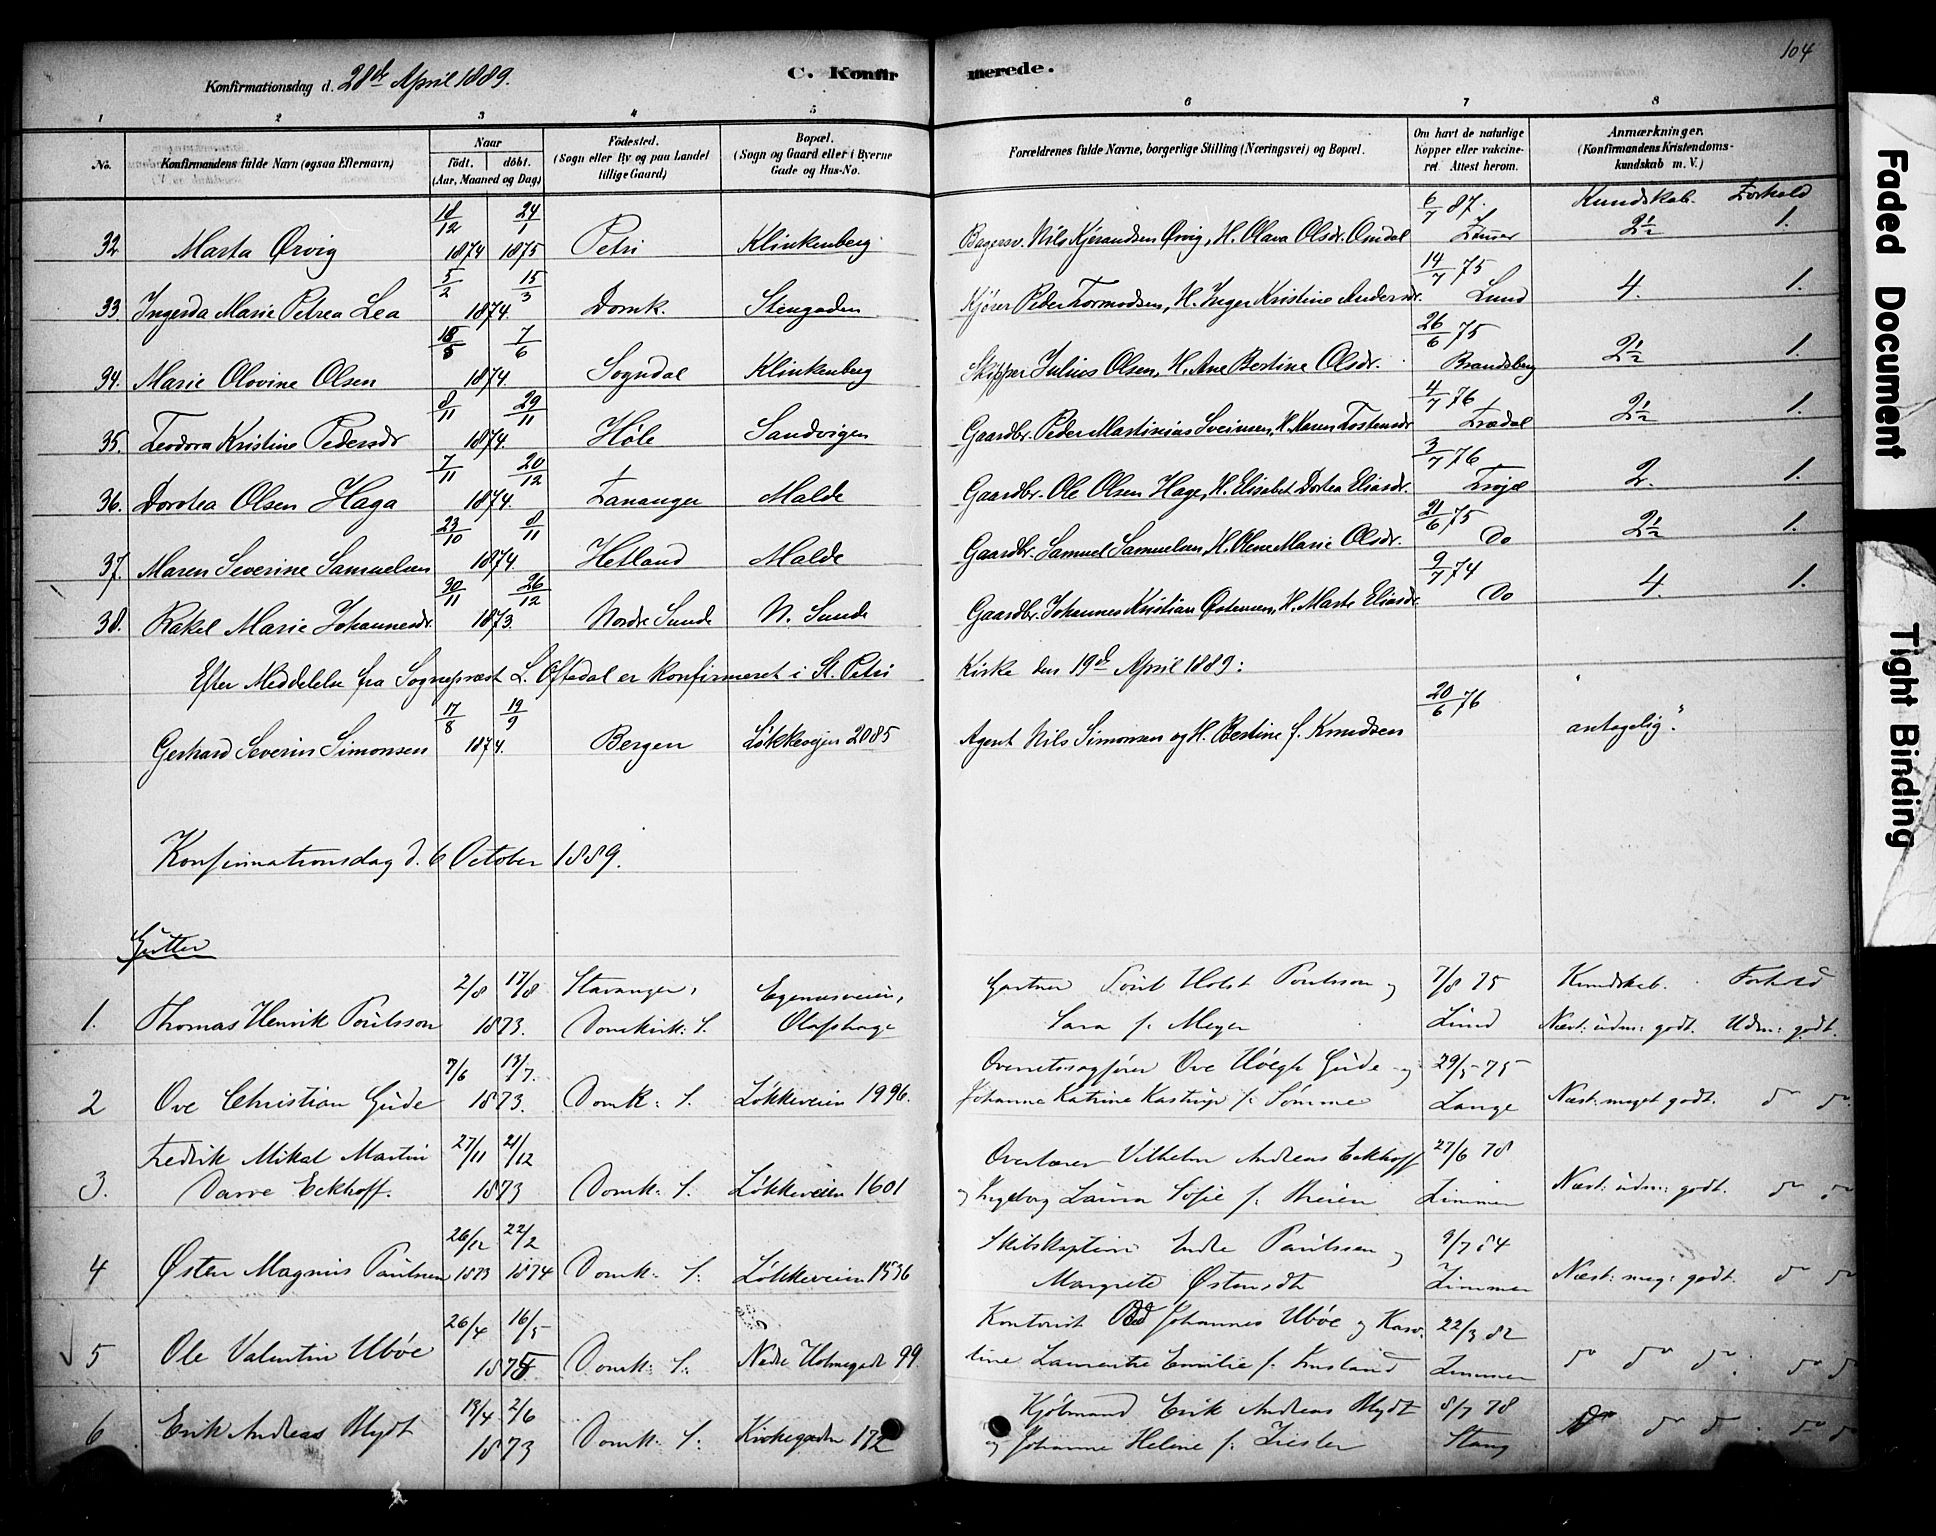 104
Konfirmationsdag d. 28de April 1889.
C. Konfirmerede.
1 2 3 4 5 6 7 8
No.
Konfirmandens fulde Navn (ogsaa Efternavn)
Naar
født. døbt.
(Aar, Maaned og Dag)
Fødested.
(Sogn eller By og paa Landet
tillige Gaard)
Bopæl.
(Sogn og Gaard eller i Byerne
Gade og Hus-No.
Forældrenes fulde Navne, borgerlige Stilling (Næringsvei) og Bopæl.
Om havt de naturlige
Kopper eller vakcine-
ret. Attest herom.
Anmærkninger.
(Konfirmandens Kristendoms-
kundskab m. V.)
Kundskab. Forhold
18/12 24/1 6/7 87.
32 Marta Ørvig 1874 1875 Petri Klinkenberg Bagersv. Nils Kjerandsen Ørvig, H. Olava Olsdr. Omdal 2½ 1.
5/2 15/3 14/7 75
33. Ingerda Marie Petrea Lea 1874. Domk. Stengaden Kjører Peder Tormodsen, H. Inger Kristine Andersdr. Lund 4. 1.
18/5 7/6 26/6 75
34. Marie Olovine Olsen 1874. Sogndal Klinkenberg Skipper Julius Olsen, H. Ane Bertine Olsdr. Brandsberg 2½ 1.
8/11 29/11 4/7 76
35. Teodora Kristine Pedersdr 1874. Høle Sandvigen Gaardbr. Peder Martinius Sveinsen, H. Maren Tostensdr Trædal 2½ 1.
7/11 20/12 3/7 76
36. Dorotea Olsen Haga 1874. Tananger Malde Gaardbr. Ole Olsen Hage, H. Elisabet Dortea Eliasdr. 2. 1.
23/10 8/11 21/6 75
37. Maren Severine Samuelsen 1874 Hetland Malde Gaardbr. Samuel Samuelsen, H. Olene Marie Olsdr. Do 2½ 1.
30/11 26/12 9/7 74
38. Rakel Marie Johannesdr. 1873. Nordre Sunde N. Sunde Gaardbr. Johannes Kristian Østensen, H. Marte Eliasdr Do 4. 1.
Efter Meddelelse fra Sognepræst L. Oftedal er konfirmeret i St. Petri Kirke den 19de April 1889:
17/8 19/9 20/6 76
Gerhard Severin Simonsen 1874. Bergen Løkkevejen 2085 Agent Nils Simonsen og H. Bertine f. Knudsen "antagelig".
Konfirmationsdag d. 6 October 1889.
Gutter
2/8 17/8 Stavanger, Egenæsveien, Gartner Poul Holst Poulsson og 7/8 75 Kundskab. Forhold
1. Thomas Henrik Poulsson 1873. Domkirk: S. Olafshage Sara f: Meyer Lund Næst: udm: godt. Udm: godt.
7/6 13/7. Overretssagfører Ove Høegh Gude og 29/5 75
2 Ove Christian Gude 1873. Domk: S. Løkkeveien 1996. Johanne Katrine Kastrup f: Sømme Lange Næst: meget godt. do do
Fredrik Mikal Martin 27/11 21/12 Overlærer Vilhelm Andreas Eckhoff 27/6 78
3. Darre Eckhoff. 1873 Domk: S. Løkkeveien 1601 og Ingeborg Laura Sofie f: Breien Zimmer Næst: udm: godt. do do
26/12 22/2 Skibskaptein Endre Paulsson og 9/7 84
4 Østen Magnus Paulsen 1873 1874 Domk: S: Løkkeveien 1536 Margrete Østensdt Zimmer Næst: meg: godt. do do
26/4 16/5 Kontorist Odd Johannes Ubøe og Karo- 22/3 82
5 Ole Valentin Ubøe 1875 Domk: S: Nedre Holmegade 99 line Laurentse Emilie f: Zimmer do do do. do do
13/4 2/6 Kjøbmand Erik Andreas Blydt 8/7 78
6 Erik Andreas Blydt 1873 Domk: S: Kirkegaden 172 og Johanne Helene f: Stang do do do. do do
Faded Document
Tight Binding